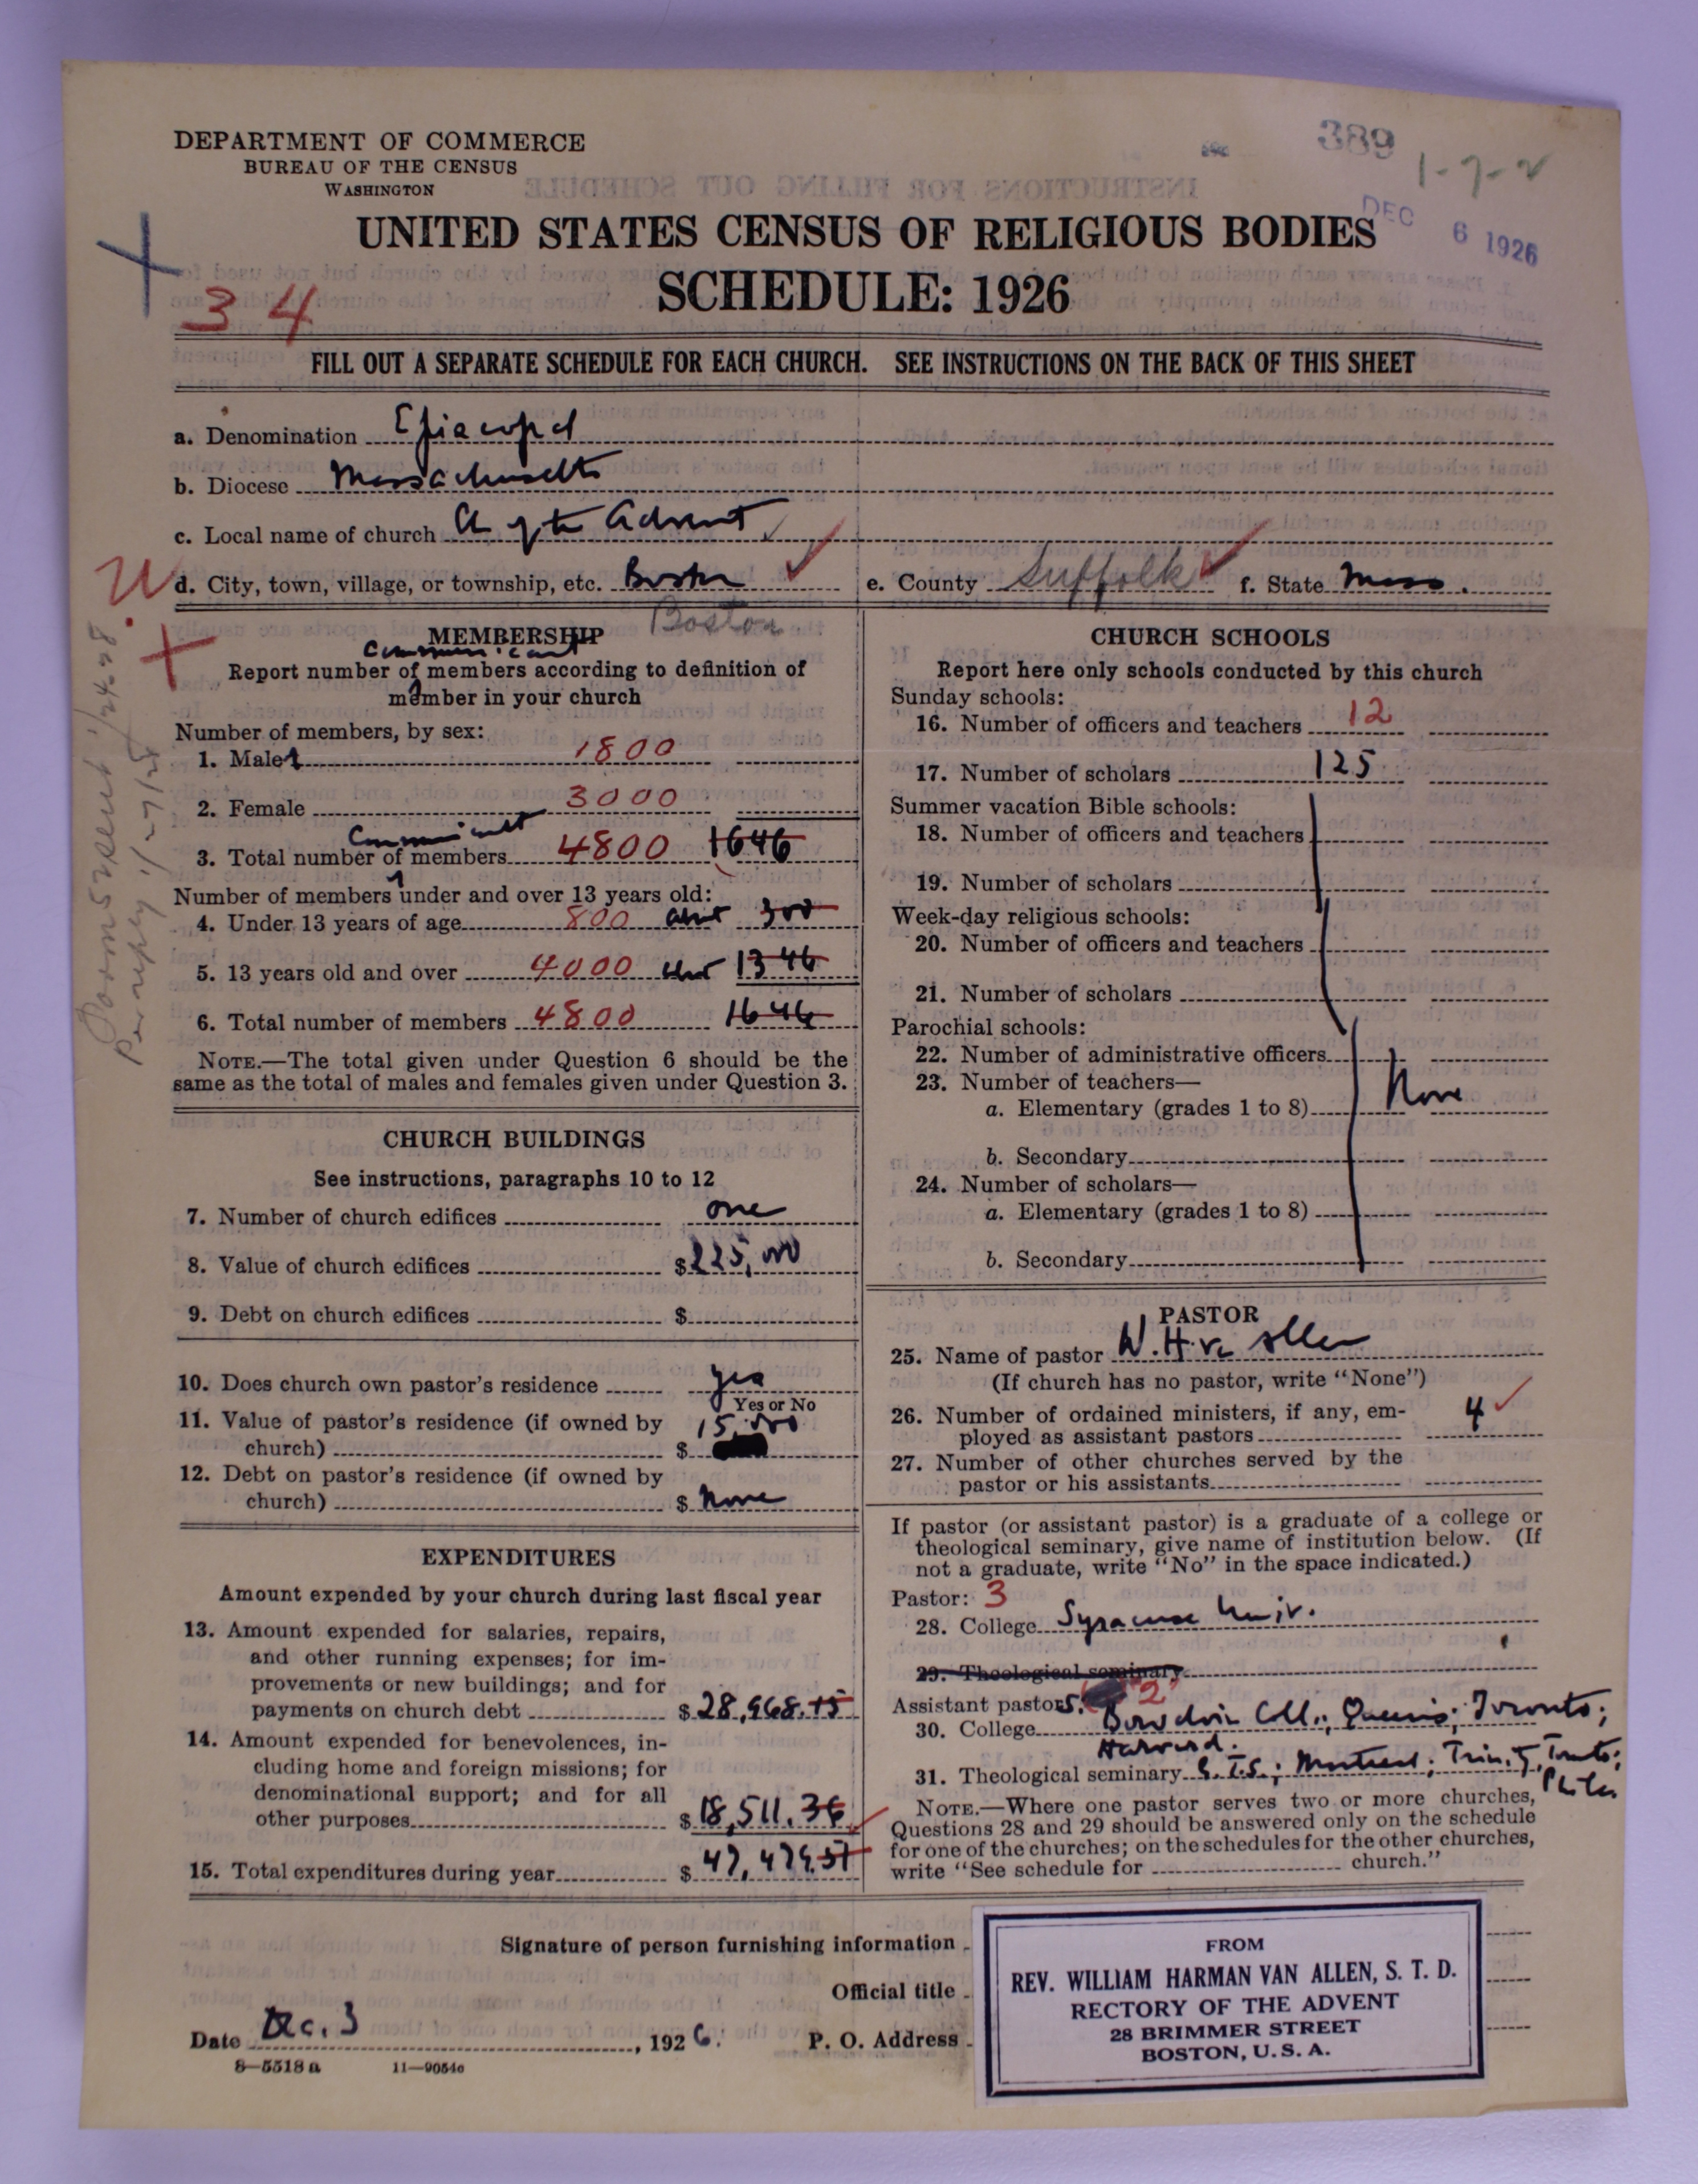 389
1-7-2
DEC 6 1926
DEPARTMENT OF COMMERCE
BUREAU OF THE CENSUS
WASHINGTON
UNITED STATES CENSUS OF RELIGIOUS BODIES
SCHEDULE: 1926
34
FILL OUT A SEPARATE SCHEDULE FOR EACH CHURCH. SEE INSTRUCTIONS ON THE BACK OF THIS SHEET
a. Denomination Episcopal
b. Diocese Massachusetts
c. Local name of church Ch of the Advent
d. City, town, village, or township, etc. Boston e. County Suffolk f. State Mass.
Boston
MEMBERSHIP
Communicant
Report number of members according to definition of
member in your church
Number of members, by sex:
1. Male 1800
2. Female 3000
Communicant
3. Total number of members 4800 1646
Number of members under and over 13 years old:
4. Under 13 years of age 800 abt 300
5. 13 years old and over 4000 abt 1346
6. Total number of members 4800 1646
NOTE.—The total given under Question 6 should be the
same as the total of males and females given under Question 3.
CHURCH BUILDINGS
See instructions, paragraphs 10 to 12
7. Number of church edifices one
8. Value of church edifices $225,000
9. Debt on church edifices $
10. Does church own pastor's residence yes
Yes or No
11. Value of pastor's residence (if owned by
church) $ 15,000
12. Debt on pastor's residence (if owned by
church) $ None
EXPENDITURES
Amount expended by your church during last fiscal year
13. Amount expended for salaries, repairs,
and other running expenses; for im-
provements or new buildings; and for
payments on church debt $28,968.15
14. Amount expended for benevolences, in-
cluding home and foreign missions; for
denominational support; and for all
other purposes $18,511.36
15. Total expenditures during year $47,479.51
CHURCH SCHOOLS
Report here only schools conducted by this church
Sunday schools:
16. Number of officers and teachers 12
17. Number of scholars 125
Summer vacation Bible schools:
18. Number of officers and teachers
19. Number of scholars
Week-day religious schools:
20. Number of officers and teachers
21. Number of scholars
Parochial schools:
22. Number of administrative officers
23. Number of teachers—
None
a. Elementary (grades 1 to 8)
b. Secondary
24. Number of scholars—
a. Elementary (grades 1 to 8)
b. Secondary
PASTOR
25. Name of pastor W. H. van Allen
(If church has no pastor, write "None")
26. Number of ordained ministers, if any, em-
ployed as assistant pastors 4
27. Number of other churches served by the
pastor or his assistants
If pastor (or assistant pastor) is a graduate of a college or
theological seminary, give name of institution below. (If
not a graduate, write "No" in the space indicated.)
Pastor: 3
28. College Syracuse Univ.
29. Theological seminary
Assistant pastors. 2
30. College Bowdoin Coll.; Queens; Toronto;
Harvard.
31. Theological seminary G.T.S.; Montreal; Trinity, Toronto;
Phila
NOTE.—Where one pastor serves two or more churches,
Questions 28 and 29 should be answered only on the schedule
for one of the churches; on the schedules for the other churches,
write "See schedule for church."
Signature of person furnishing information
Official title
Date Dec. 3, 1926. P. O. Address
8—5518a 11—9054c
FROM
REV. WILLIAM HARMAN VAN ALLEN, S. T. D.
RECTORY OF THE ADVENT
28 BRIMMER STREET
BOSTON, U. S. A.